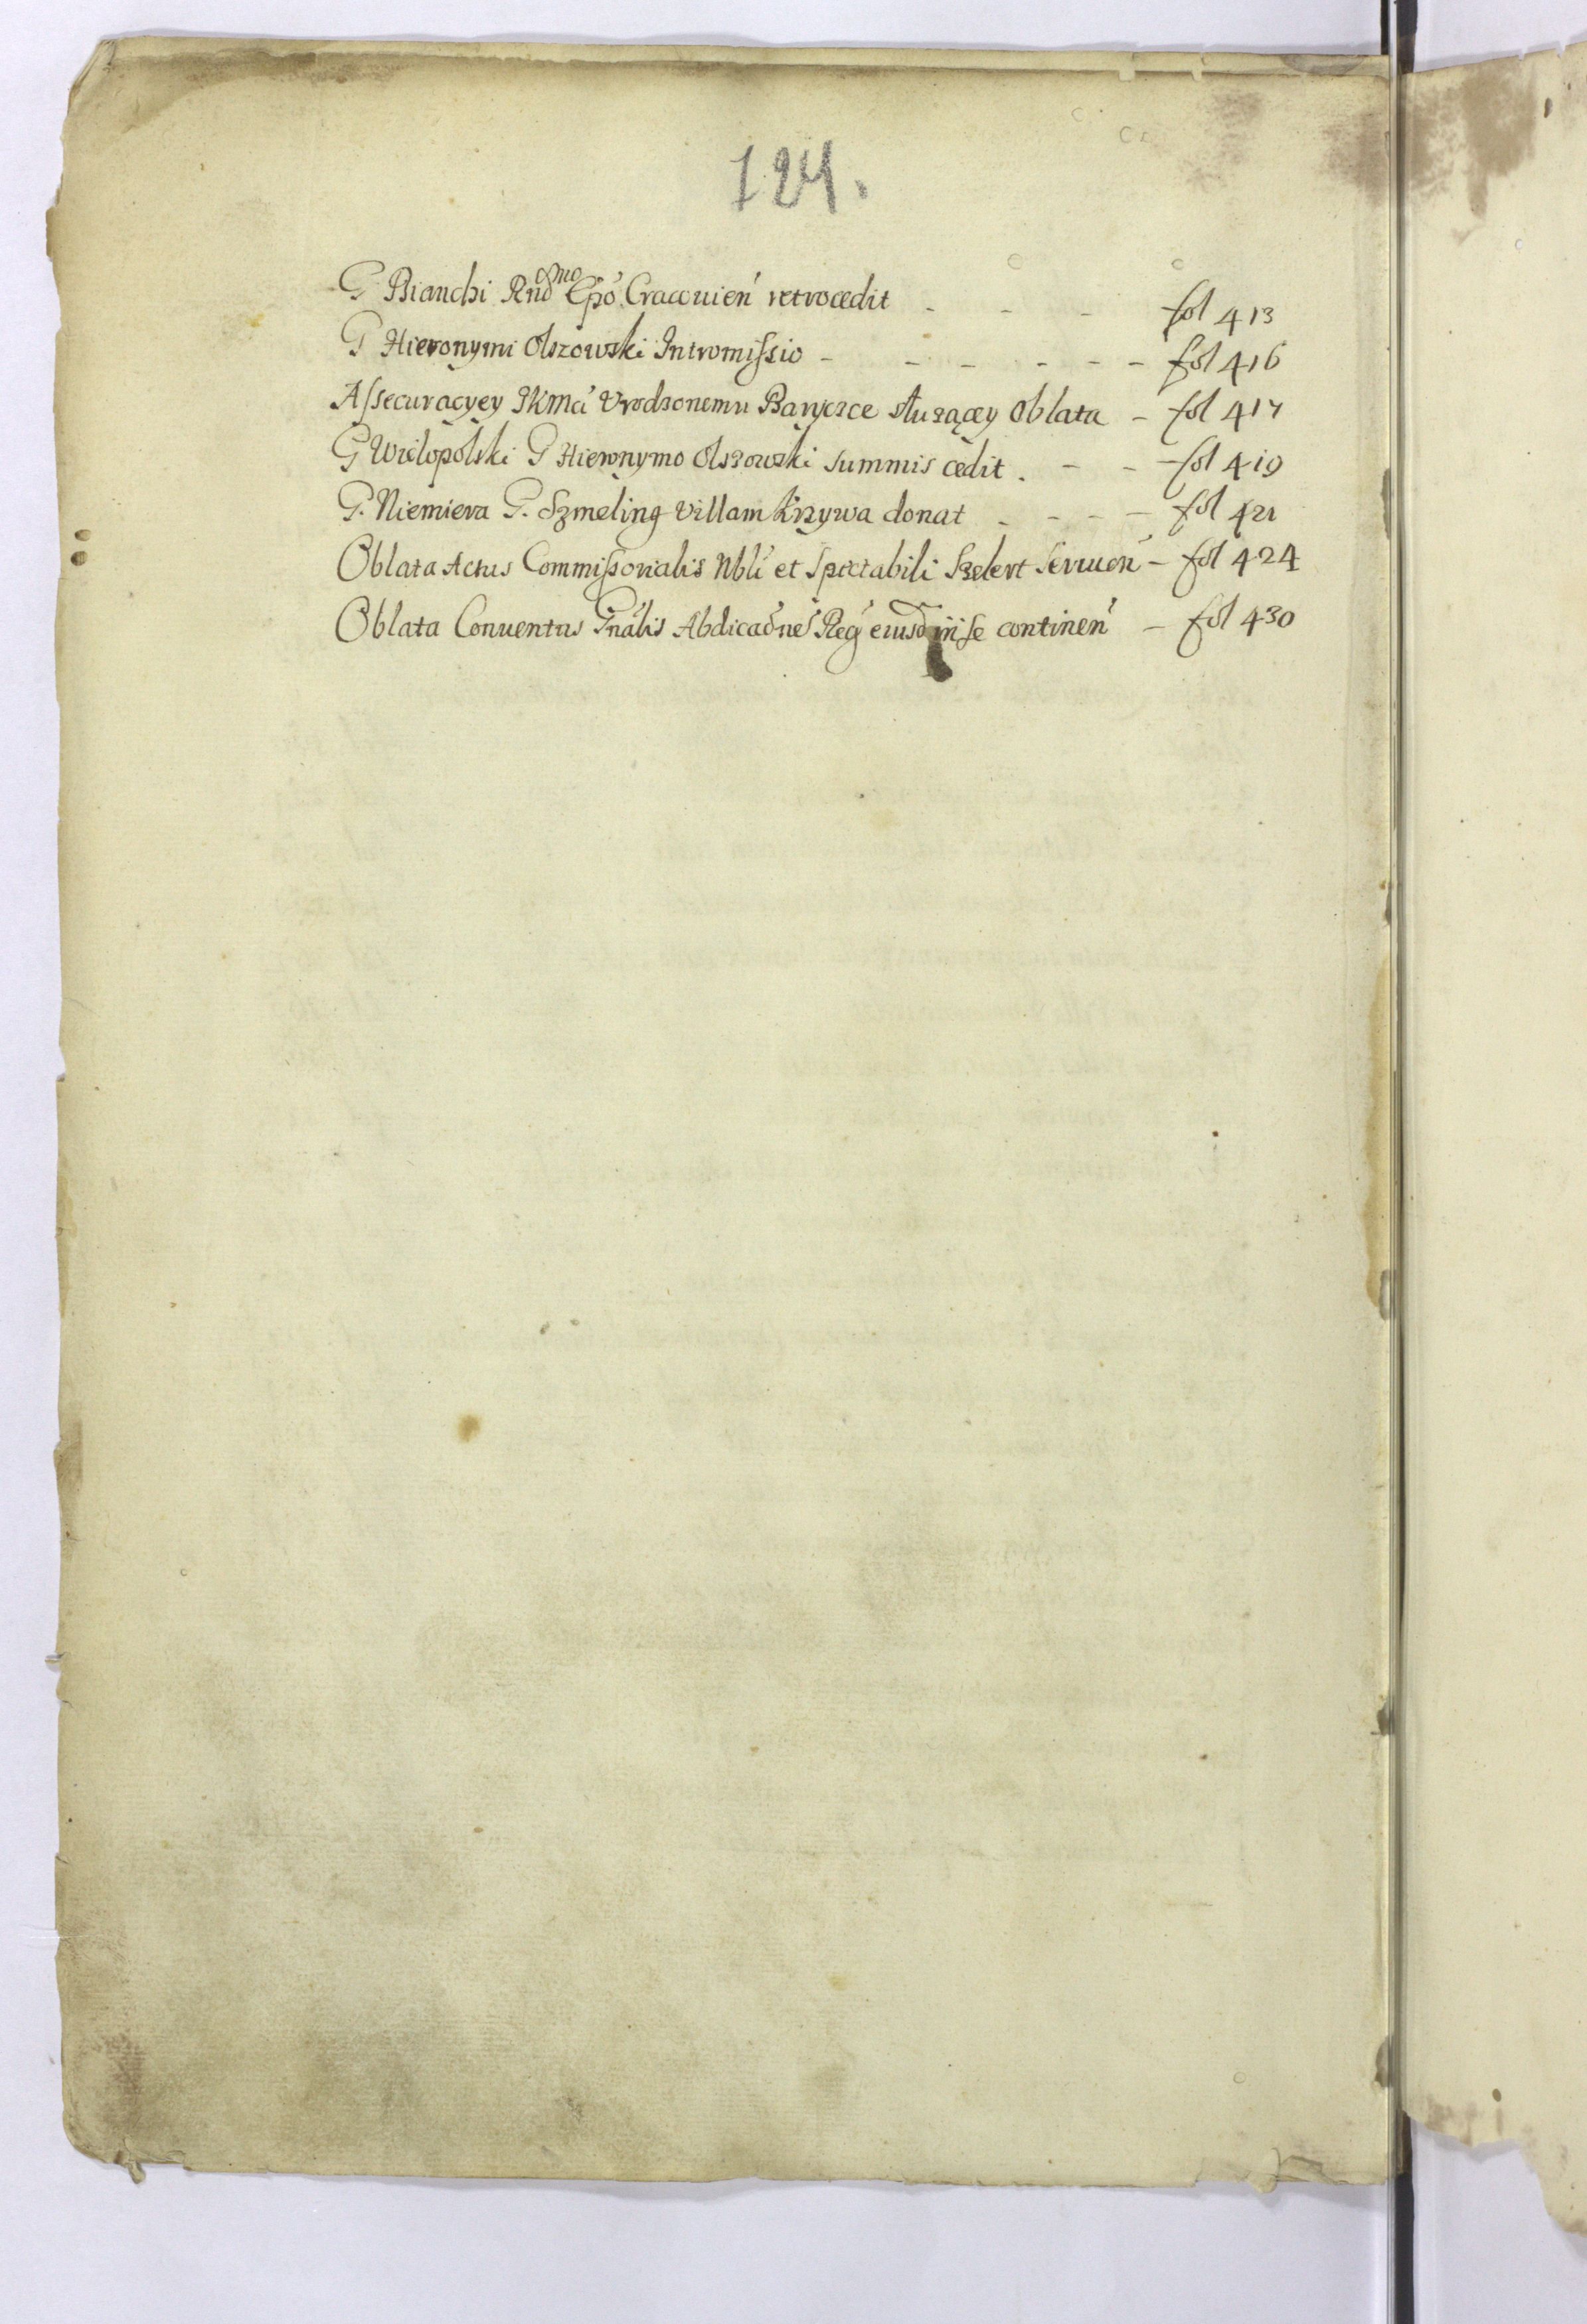 124.
G Bianchi Rnd̃mo Epo Cracouien retrocedit - - - fol 413
G Hieronymi Olszowski Intromissio - - - - - - fol 416
Assecuracyey JKMci Vrodzonemu Baryczce służącey Oblata - fol 417
G Wielopolski G Hieronymo Olszowski summis cedit . - - - fol 419
G. Niemiera G. Szmeling villam Krzywa donat - - - - fol 421
Oblata Actus Commissorialis Nbli et Spectabili Szelert seruien - fol 424
Oblata Conuentus Gnalis Abdicaõne Reg eiusd in se continen - fol 430